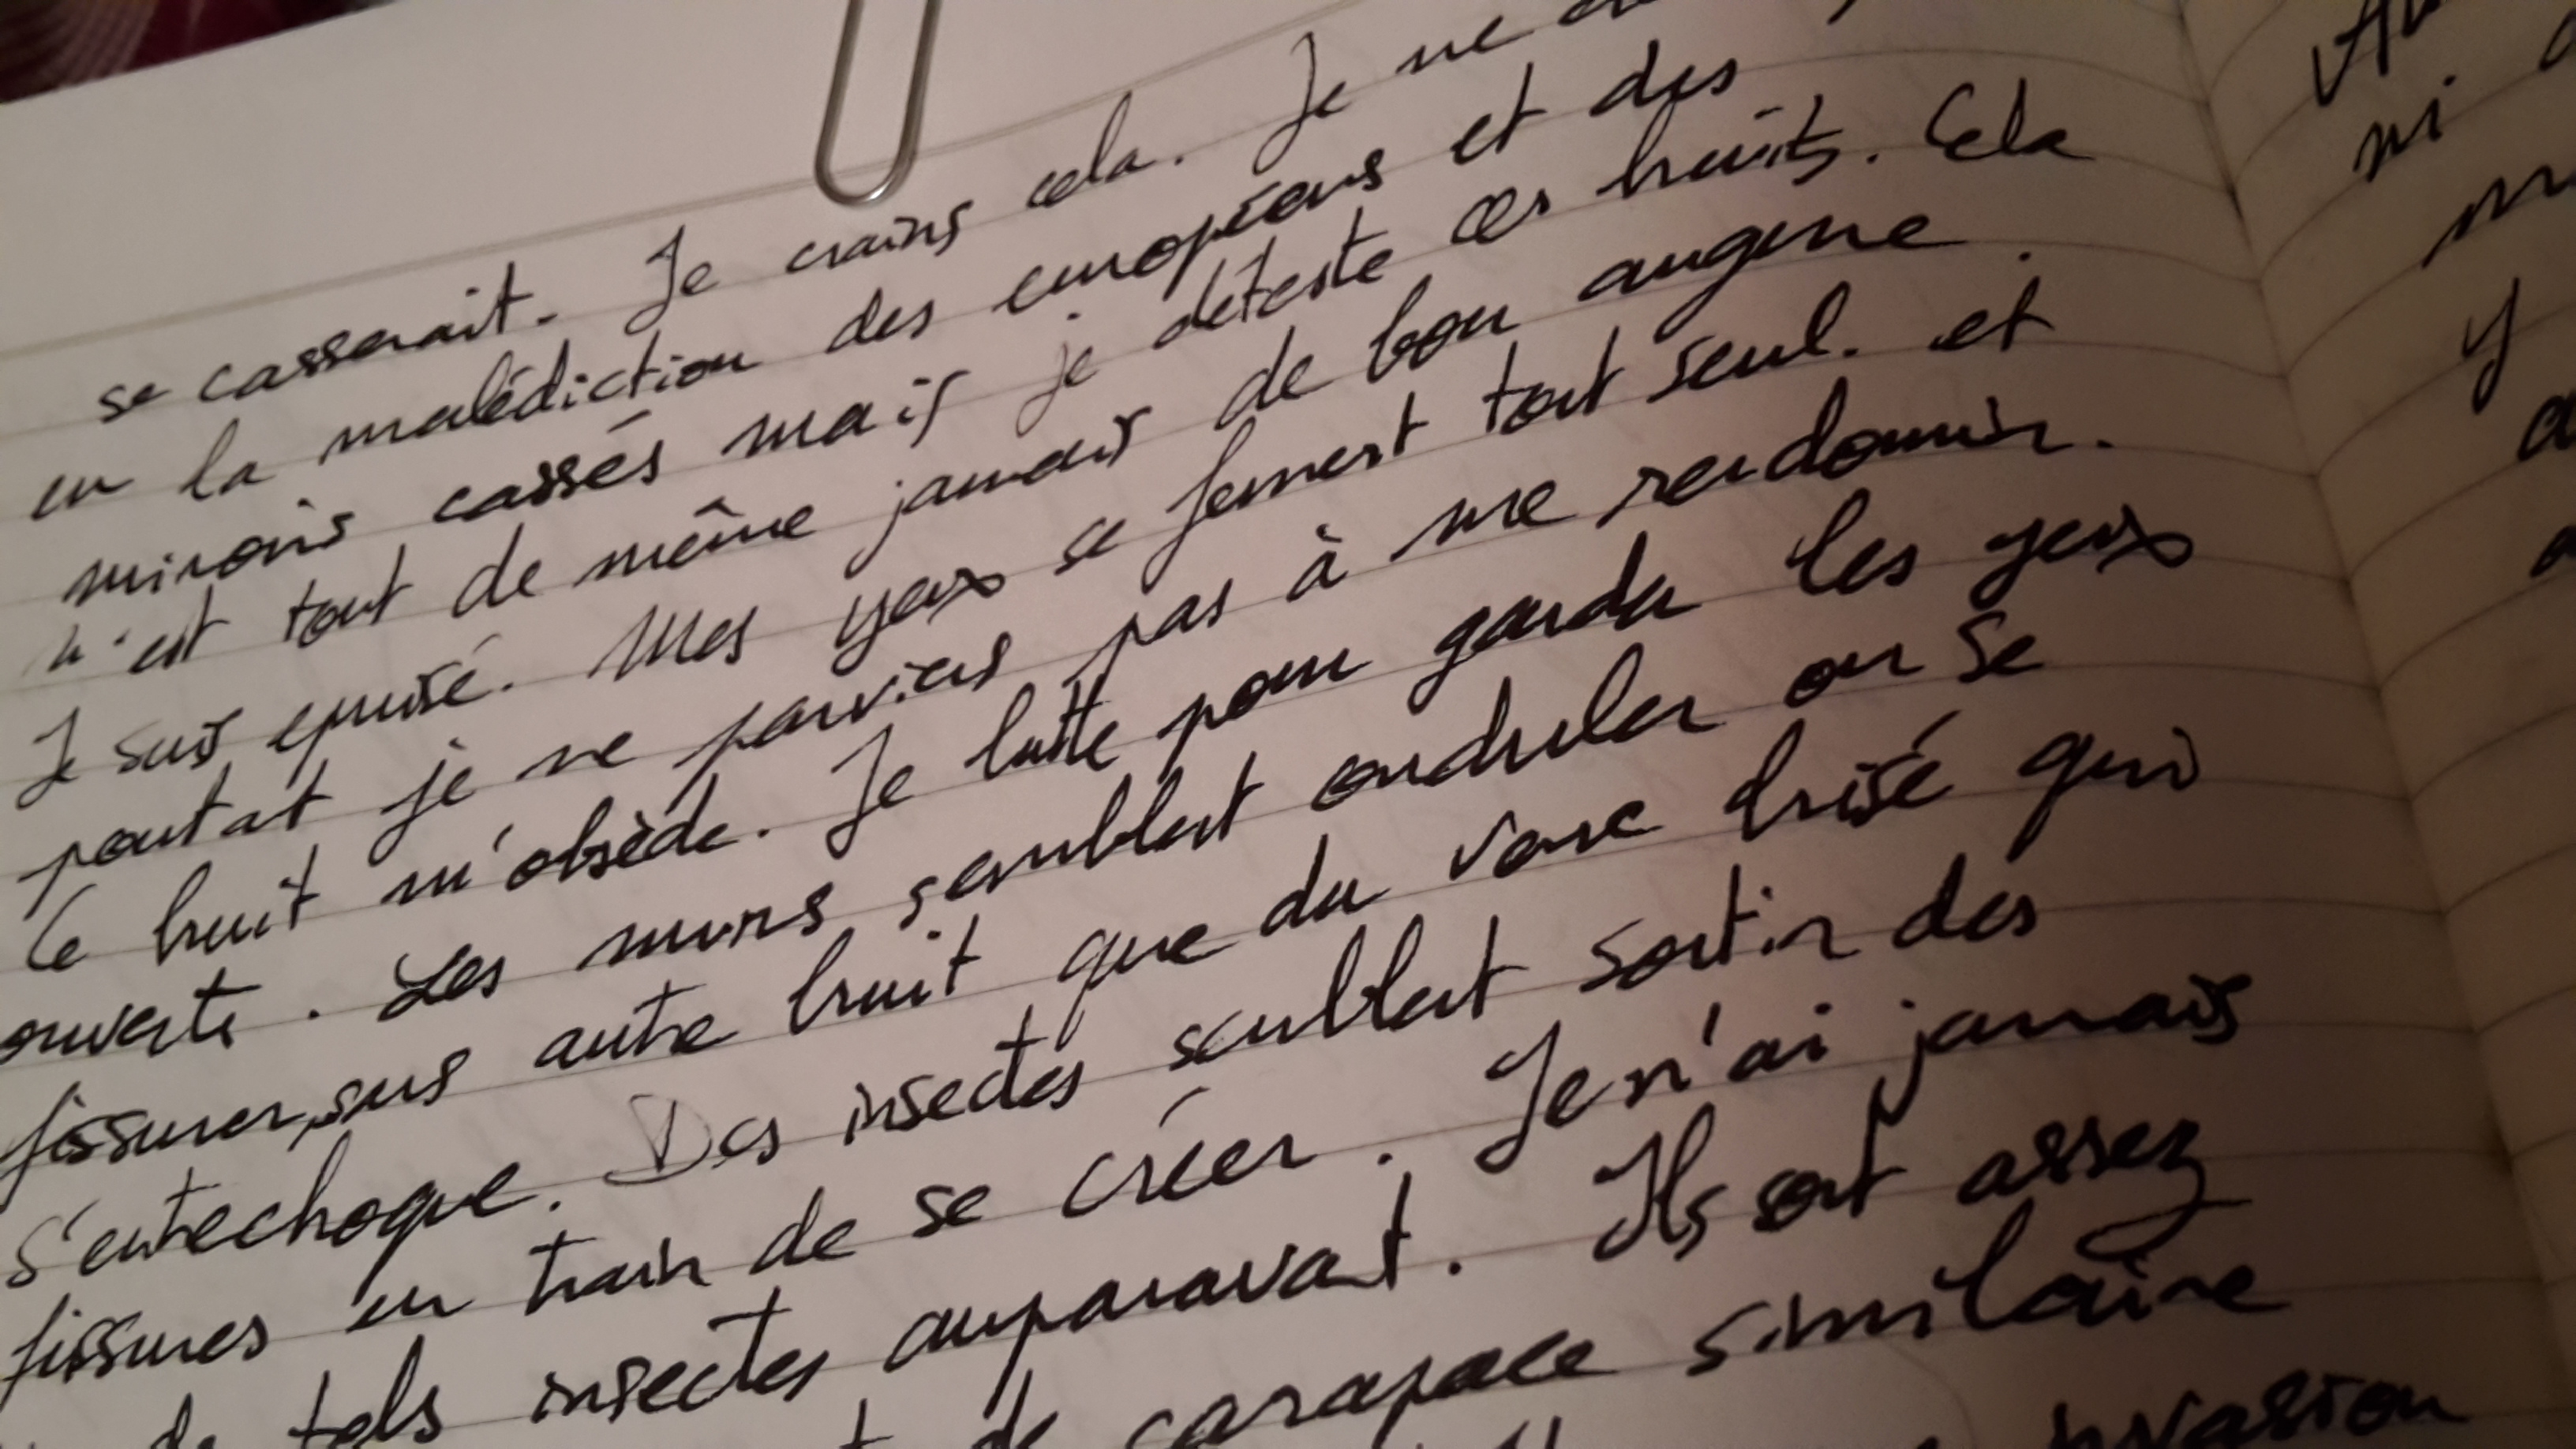 se casserait. Je crains cela. Je ne
en la malédiction des européens et des
miroirs cassés mais je déteste ces bruits. Cela
n'est tout de même jamais de bon augure.
Je suis epuisé. Mes yeux se ferment tout seul. et
pourtat je ne parviens pas à me rendormir.
Ce bruit m'obsède. Je lutte pour garder les yeux
ouverts. Les murs semblent onduler ou se
fissurer, sans autre bruit que du verre brisé qui
s'entrechoque. Des insectes semblent sortir des
fissures en train de se créer. Je n'ai jamais
de tels insectes auparavant. Ils sont assez
de carapace similaire
invasion
ni
y